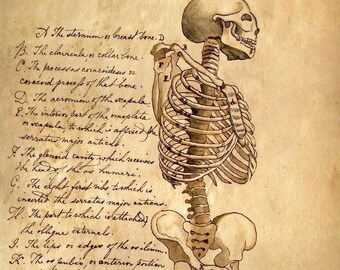 A The sternum or breast bone. D
B. The clavicula or collar bone.
C. The processus coracoideus or
coracoid process of that bone.
D. The acromion of the scapula.
E. The interior part of the
scapula, to which is affixed the
serratus major anticus.
F. The glenoid cavity, which receives
the head of the os humeri.
G. The eight first ribs to which is
inserted the serratus major anticus.
H. The part to which is attached
the oblique external.
I. The lips or edges of the os ilium.
K. The os pubis, or anterior portion